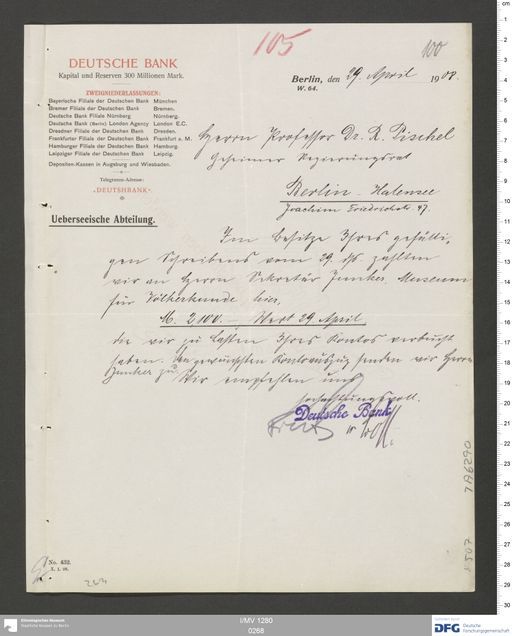 105
100
DEUTSCHE BANK
Kapital und Reserven 300 Millionen Mark.
ZWEIGNIEDERLASSUNGEN:
Bayerische Filiale der Deutschen Bank München
Bremer Filiale der Deutschen Bank Bremen.
Deutsche Bank Filiale Nürnberg Nürnberg.
Deutsche Bank (Berlin) London Agency London E.C.
Dresdner Filiale der Deutschen Bank Dresden.
Frankfurter Filiale der Deutschen Bank Frankfurt a. M.
Hamburger Filiale der Deutschen Bank Hamburg.
Leipziger Filiale der Deutschen Bank Leipzig.
Depositen-Kassen in Augsburg und Wiesbaden.
Telegramm-Adresse:
"DEUTSHBANK"
Ueberseeische Abteilung.
Berlin, den 29. April 1908.
W. 64.
Herrn Professor Dr. R. Pischel
Geheimer Regierungsrat
Berlin - Halensee
Joachim Friedrichstr 47.
Im Besitze Ihres gefälli-
gen Schreibens vom 29. ds. zahlten
wir an Herrn Sekretär Junker, Museum
für Völkerkunde hier,
M. 2100.- Wert 29 April,
die wir zu Lasten Ihres Kontos verbucht
haben. Den gewünschten Kontoauszug senden wir Herrn
Junker zu. Wir empfehlen uns
hochachtungsvoll.
Deutsche Bank
No. 432.
X. 1. 08.
264
7A6290
I/MV 1280
0268
Ethnologisches Museum
Staatliche Museen zu Berlin
DFG Deutsche
Forschungsgemeinschaft